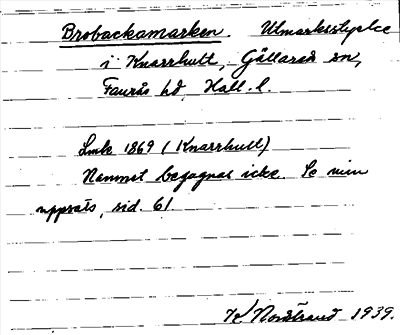 Brobackamarken. Utmarksstycke
i Knarrhult, Gällared sn,
Faurås hd, Hall. l.
Lmk 1869 (Knarrhult)
Namnet begagnas icke. Se min
uppsats, sid. 61.
Nordstrand 1939.